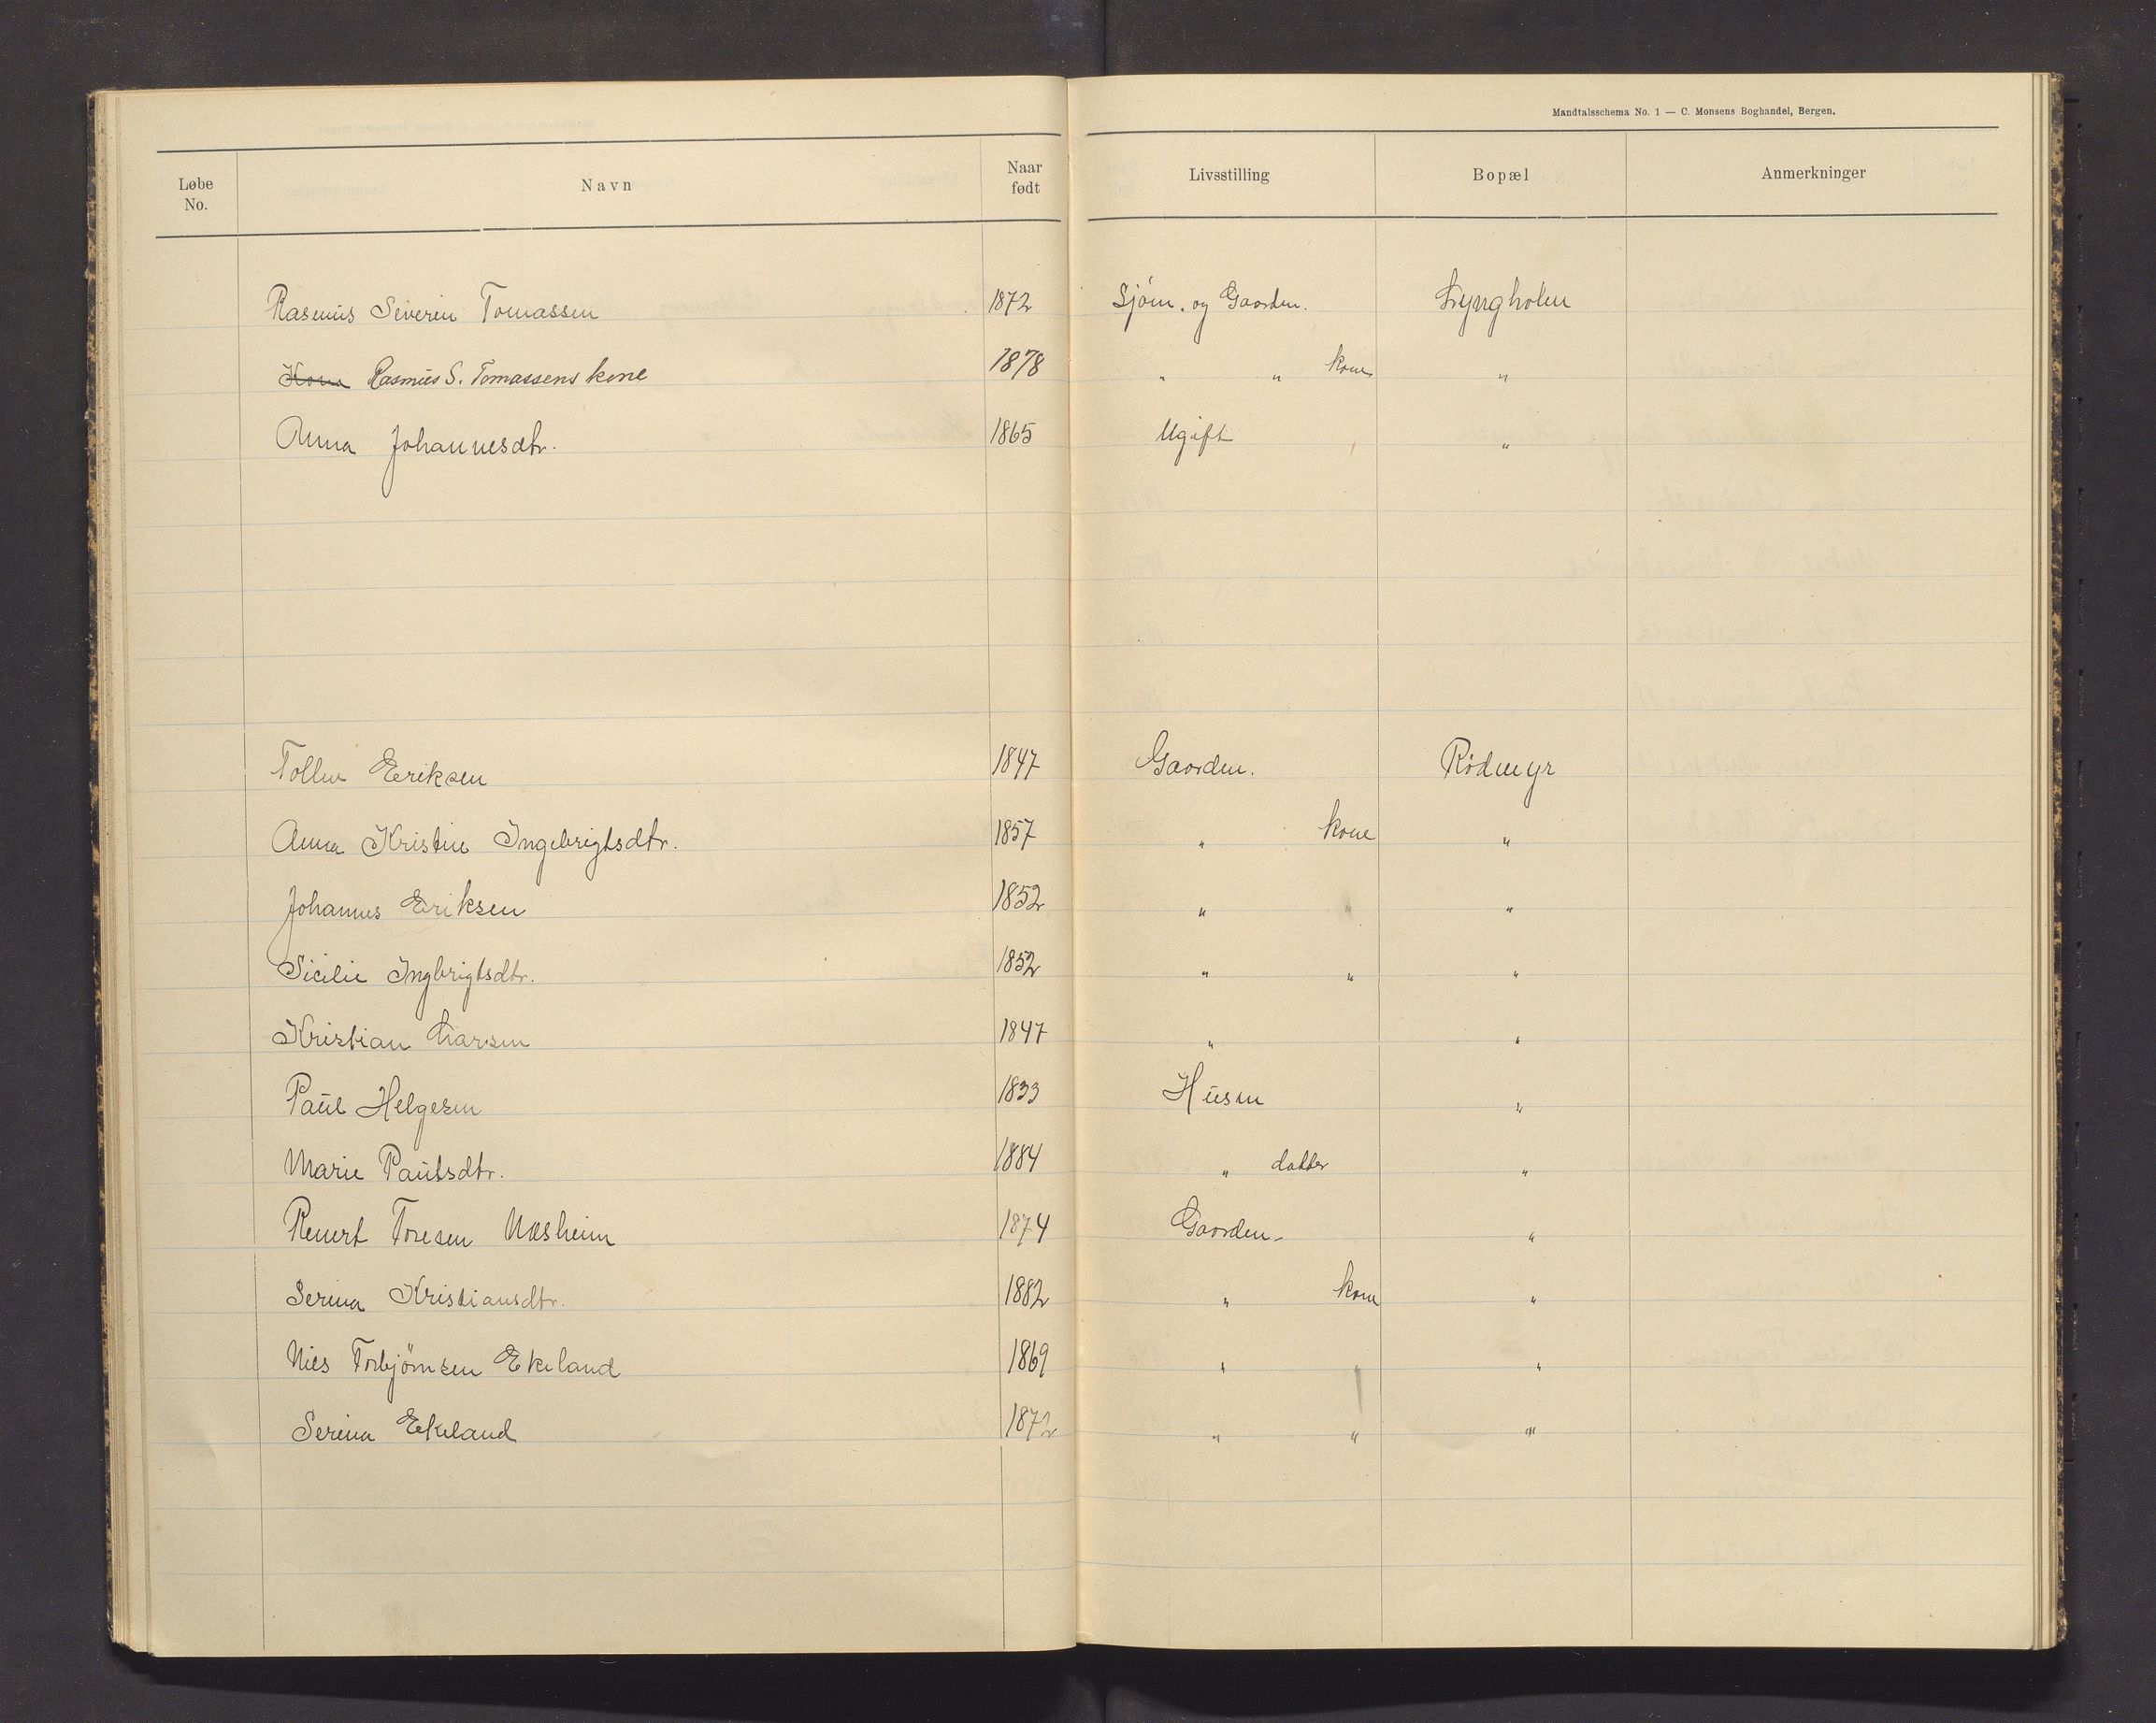 Mandtalsschema No. 1 — C. Monsens Boghandel, Bergen.
Løbe No. Navn Naar født Livsstilling Bopæl Anmerkninger
Rasmus Severin Tomassen 1872 Sjöm. og Gaarden. Lyngholm
Kona Rasmus S. Tomassens kone 1878 " " kone "
Anna Johannesdtr. 1865 Ugift "
Tollev Eriksen 1847 Gaarden. Rödmyr
Anna Kristine Ingebrigtsdtr. 1857 " kone "
Johannes Eriksen 1852 " " "
Sicilie Ingbrigtsdtr. 1852 " " "
Kristian Larsen 1847 " "
Paul Helgesen 1833 Husm "
Marie Paulsdtr. 1884 " datter "
Revert Toresen Næsheim 1874 Gaarden. "
Serina Kristiansdtr. 1882 " kone "
Nils Torbjörnsen Ekeland 1869 " "
Serina Ekeland 1872 " " "